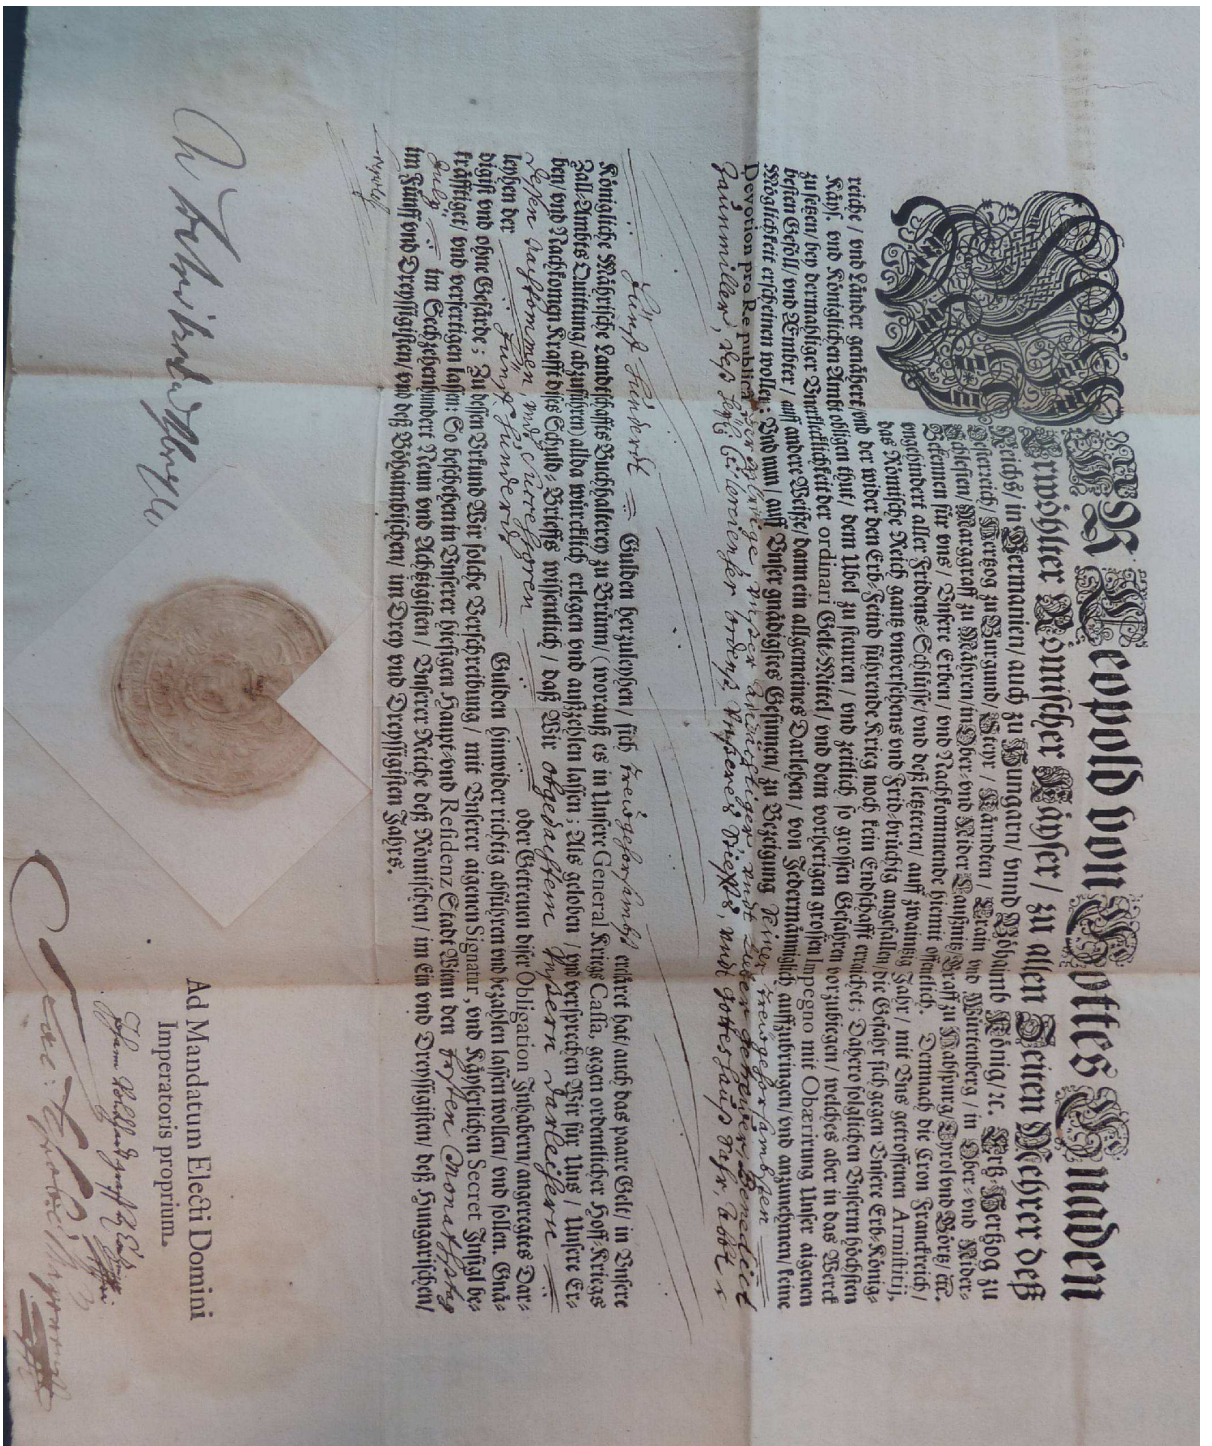 WIR Leopold von Gottes Gnaden
Erwöhlter Römischer Käyser / zu allen Zeiten Mehrer deß
Reichs / in Germanien / auch zu Hungarn / vnnd Böhaimb König / rc. Ertz-Hertzog zu
Oesterreich / Hertzog zu Burgund / Steyr / Kärndten / Crain vnd Würtenberg / in Ober- vnd Nider-
Schlesien / Marggraff zu Mähren / in Ober- vnd Nider-Laußnitz / Graff zu Habspurg / Tyrol vnd Görtz / etc.
Bekennen für vns / Vnsere Erben / vnd Nachkommende hiemit öffentlich. Demnach die Cron Franckreich /
ungehindert aller Fridens-Schlüsse / vnd deß letzteren / auff zwantzig Jahr / mit Vns getroffenen Armistitij,
das Römische Reich gantz vnversehens vnd Frid-brüchig angefallen / die Gefahr sich gegen Vnsere Erb-König-
reiche / vnd Länder genähert / vnd der wider den Erb-Feind führende Krieg noch kein Endschafft erreichet; Dahero folglichen Vnserm höchsten
Käys. vnd Königlichen Ambt obligen thut / dem Übel zu steuren / vnd zeitlich so grossen Gefahren vorzubiegen / welches aber in das Werck
zusetzen / bey dermahliger Vnerklecklichkeit der ordinari Gelt-Mittel / vnd dem vorherigen grossen Impegno mit Obærirung Unser aigenen
besten Gefäll / vnd Aembter / auff andere Weiße / dann ein allgemeines Darlehen / von Jedermänniglich auffzubringen / vnd anzunehmen / keine
Möglichkeit erscheinen wollen: Vnd nun / auff Vnser gnädigstes Gesinnen / zu Bezeigung Seiner treugehorsambsten
Devotion pro Re publica der Ehrwürdige, vnser andächtiger vndt Lieber getrewer, Benedict
Zaunmiller, deß Cistercienser ordens vnd gottshauß Abbt
fünf hundert Gulden herzuleyhen / sich treugehorsambst erkläret hat / auch das paare Gelt / in Vnsere
Königliche Mährische Landschaffts Buchhalterey zu Brünn / (worauß es in Unsere General Kriegs Cassa, gegen ordentlicher Hoff-Kriegs
Zall-Ambts Quittung / abzuführen) allda würcklich erlegen vnd außzehlen lassen; Als geloben / vnd versprechen Wir für Uns / Unsere Er-
ben / vnd Nachkomen Krafft dises Schuld-Brieffs wissentlich / daß Wir obgedachtem Unserm Darleihern
dessen Nachkommen, vnd Successoren oder Getreuen diser Obligation Inhabern / angeregtes Dar-
lehen der fünf hundert Gulden hinwider richtig abführen vnd bezahlen lassen wollen / vnd sollen. Gnä-
digist vnd ohne Gefärde; Zu dessen Vrkund Wir solche Verschreibung / mit Vnserer aigenen Signatur, vnd Käyserlichen Secret Insigl be-
kräfftiget / vnd verfertigen lassen: So beschehen in Vnserer hiesigen Haupt- vnd Residenz Stadt Wienn den Ersten Monathstag
July im Sechzehenhundert Neun vnd Achtzigisten / Vnserer Reiche deß Römischen / im Ein vnd Dreyssigisten / deß Hungarischen /
im Fünff vnd Dreyssigisten / vnd deß Böhaimbischen / im Drey vnd Dreyssigisten Jahrs.
Leopold
Ad Mandatum Electi Domini
Imperatoris proprium.